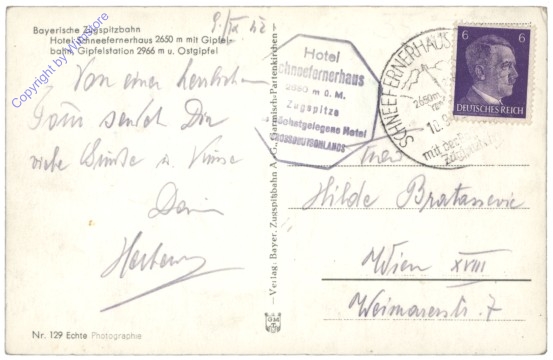 Bayerische Zugspitzbahn
Hotel Schneefernerhaus 2650 m mit Gipfel-
bahn, Gipfelstation 2966 m u. Ostgipfel
9./IX 42
Von einer herrlichen
Tour sendet Dir
viele Grüße u. Küsse
Dein
Herbert
Nr. 129 Echte Photographie
—Verlag: Bayer. Zugspitzbahn A. G., Garmisch-Partenkirchen—
Hotel
Schneefernerhaus
2650 m ü. M.
Zugspitze
Höchstgelegene Hotel
GROSSDEUTSCHLANDS
SCHNEEFERNERHAUS
2650m
10.9
mit der
Zugspitzbahn
6 6
DEUTSCHES REICH
Hilde Bratassevic
Wien XVIII
Weimarerstr. 7
Copyright by Winstore